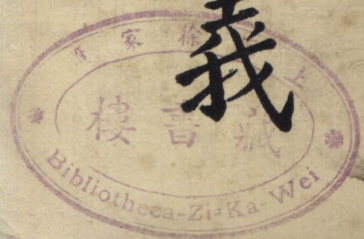 義
上徐家
藏書樓
Bibliotheca-Zi-Ka-Wei